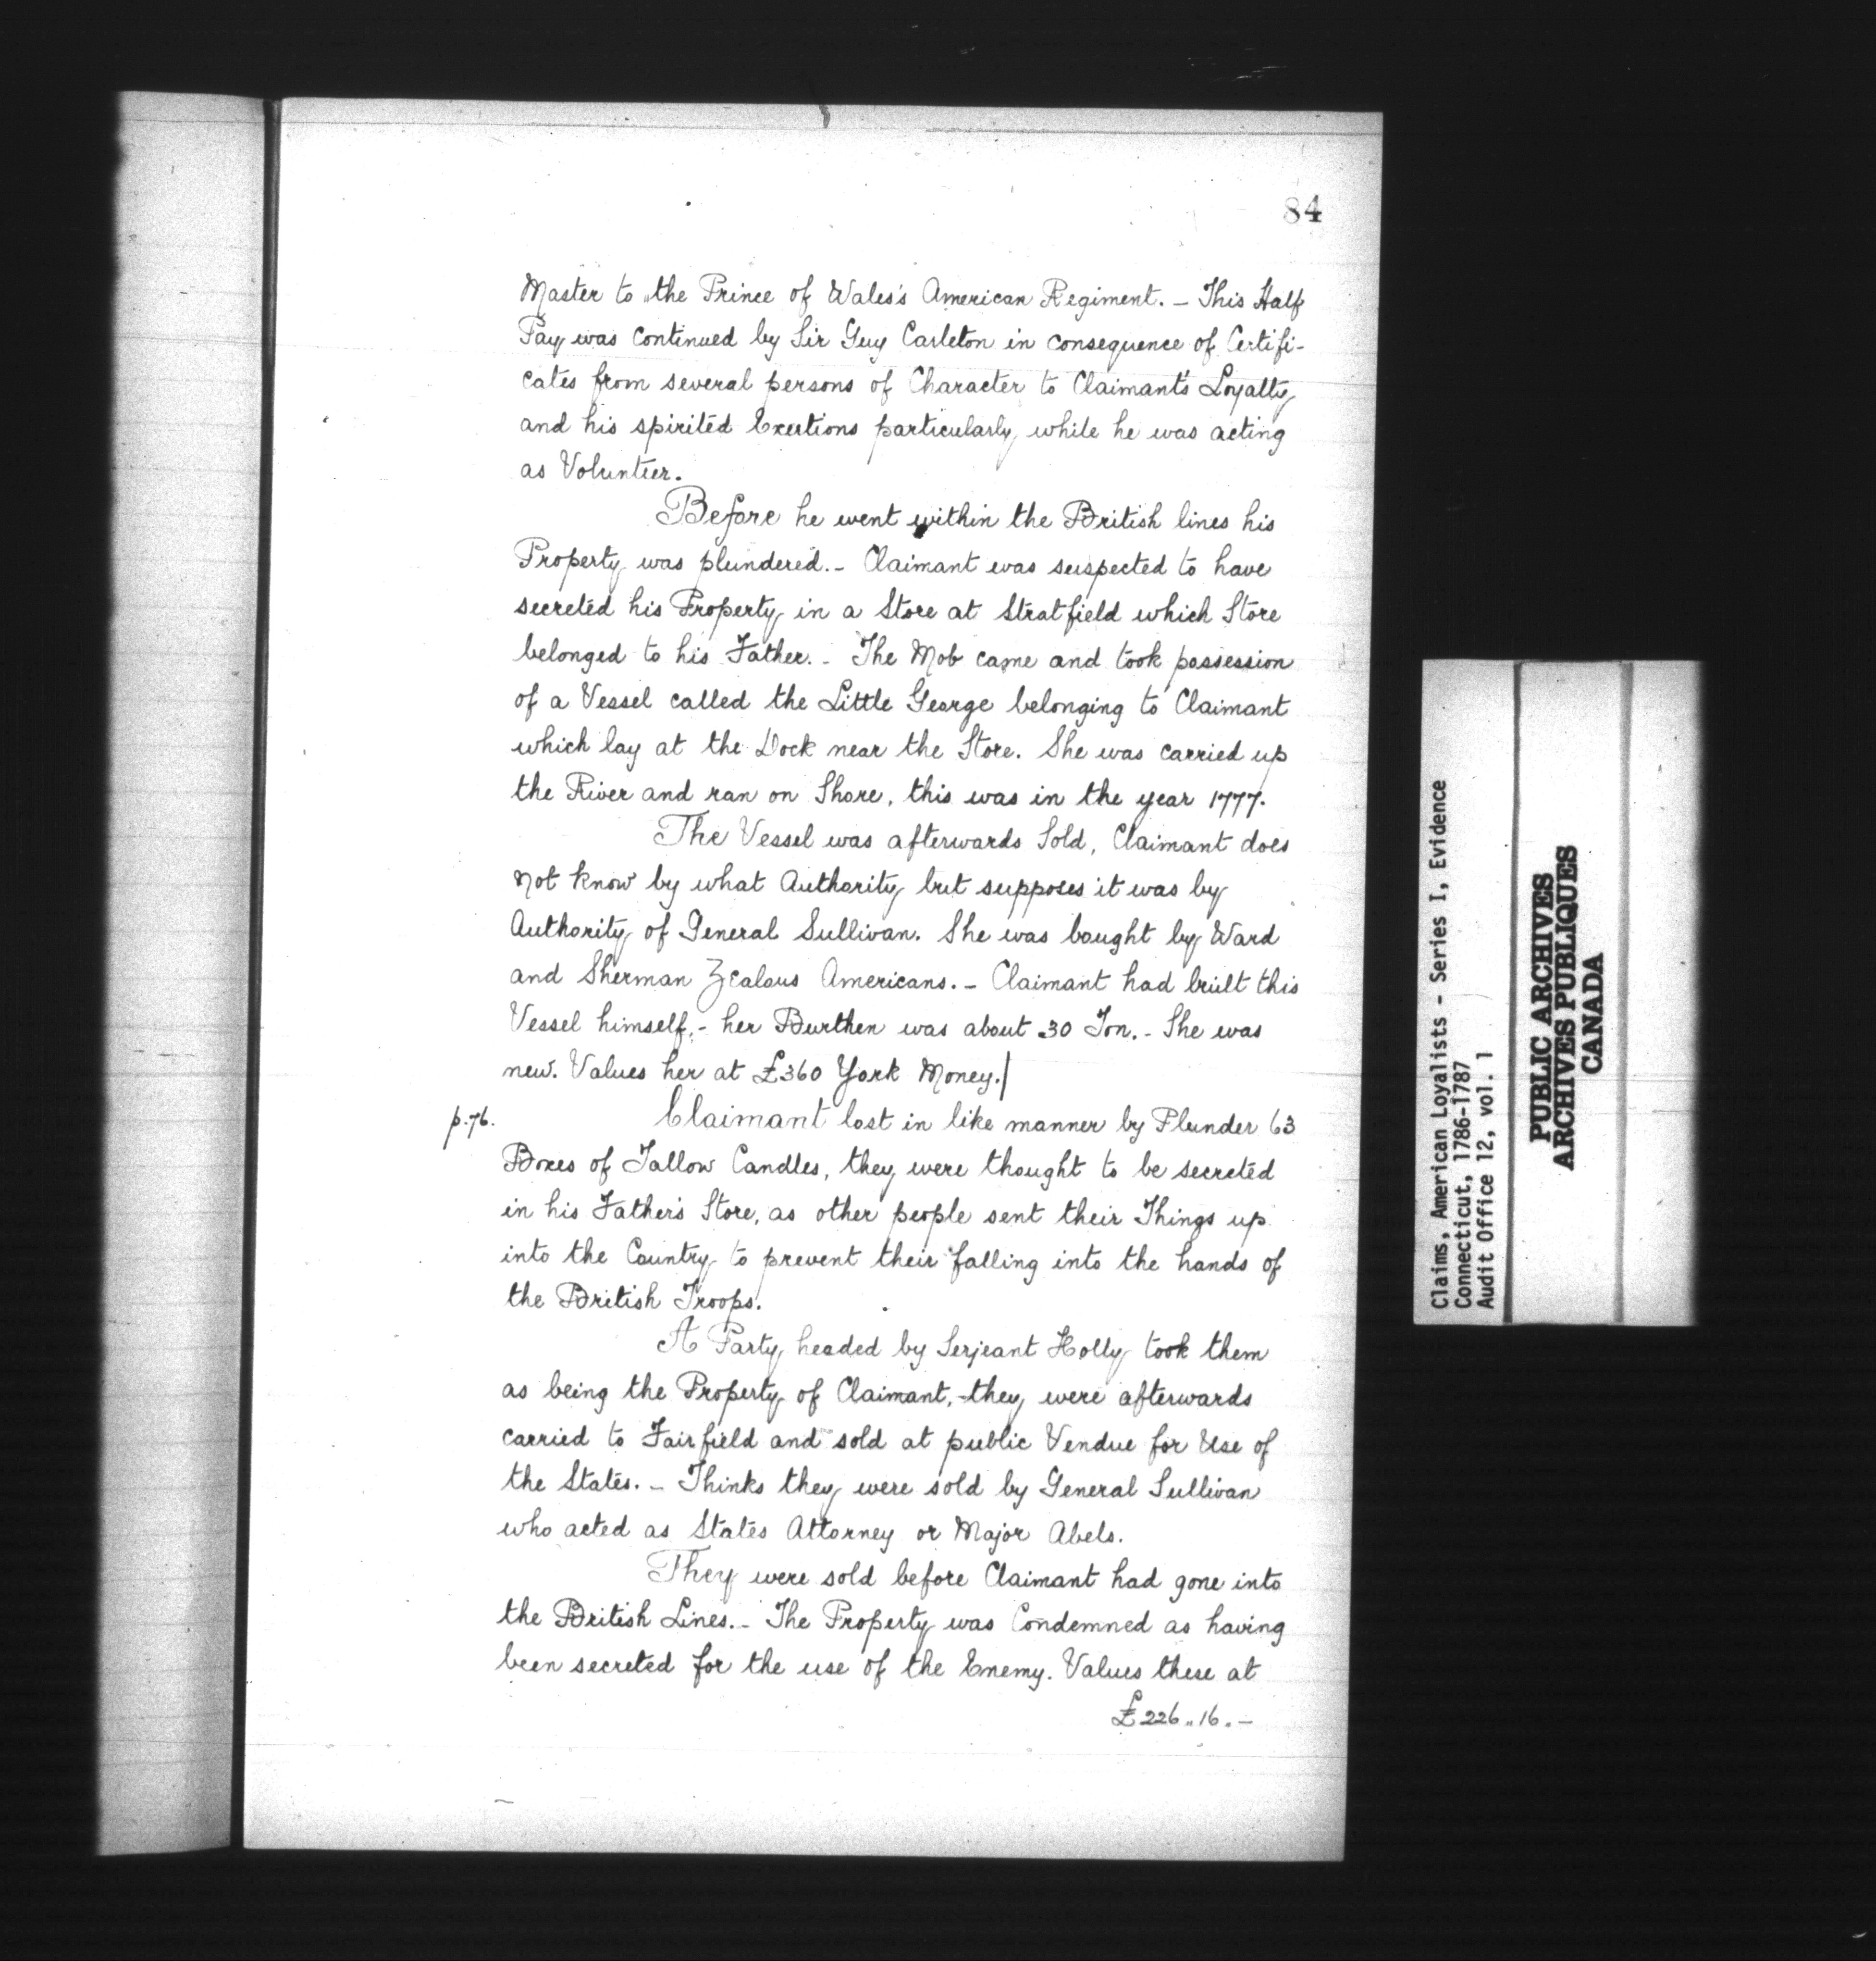 84
Master to the Prince of Wales's American Regiment. – This Half
Pay was Continued by Sir Guy Carleton in consequence of Certifi-
cates from several persons of Character to Claimant's Loyalty
and his spirited Exertions particularly while he was acting
as Volunteer.
Before he went within the British lines his
Property was plundered. – Claimant was suspected to have
secreted his Property in a Store at Stratfield which Store
belonged to his Father. – The Mob came and took possession
of a Vessel called the Little George belonging to Claimant
which lay at the Dock near the Store. She was carried up
the River and ran on Shore, this was in the year 1777.
The Vessel was afterwards Sold, Claimant does
not know by what Authority but supposes it was by
Authority of General Sullivan. She was bought by Ward
and Sherman Zealous Americans. – Claimant had built this
Vessel himself, – her Burthen was about 30 Ton. – She was
new. Values her at £360 York Money.|
p.76.
Claimant lost in like manner by Plunder 63
Boxes of Tallow Candles, they were thought to be secreted
in his Father's Store, as other people sent their Things up
into the Country to prevent their falling into the hands of
the British Troops.
A Party headed by Serjeant Holly took them
as being the Property of Claimant, they were afterwards
carried to Fairfield and sold at public Vendue for Use of
the States. – Thinks they were sold by General Sullivan
who acted as States Attorney or Major Abels.
They were sold before Claimant had gone into
the British Lines. – The Property was Condemned as having
been secreted for the use of the Enemy. Values these at
£226 " 16 " –
Claims, American Loyalists - Series I, Evidence
Connecticut, 1786-1787
Audit Office 12, vol. 1
PUBLIC ARCHIVES
ARCHIVES PUBLIQUES
CANADA